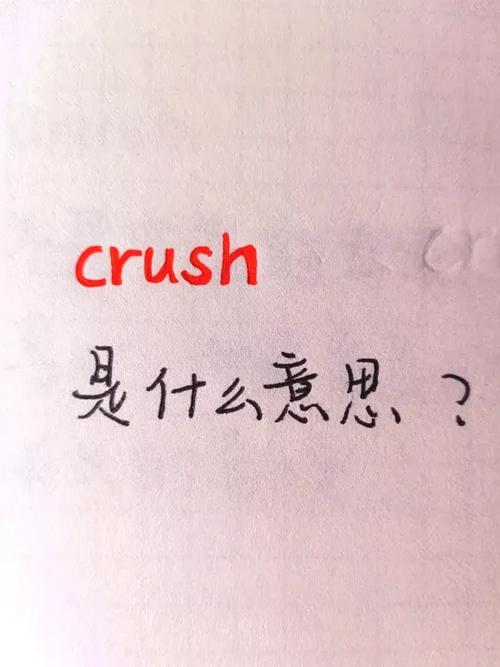 crush
是什么意思？